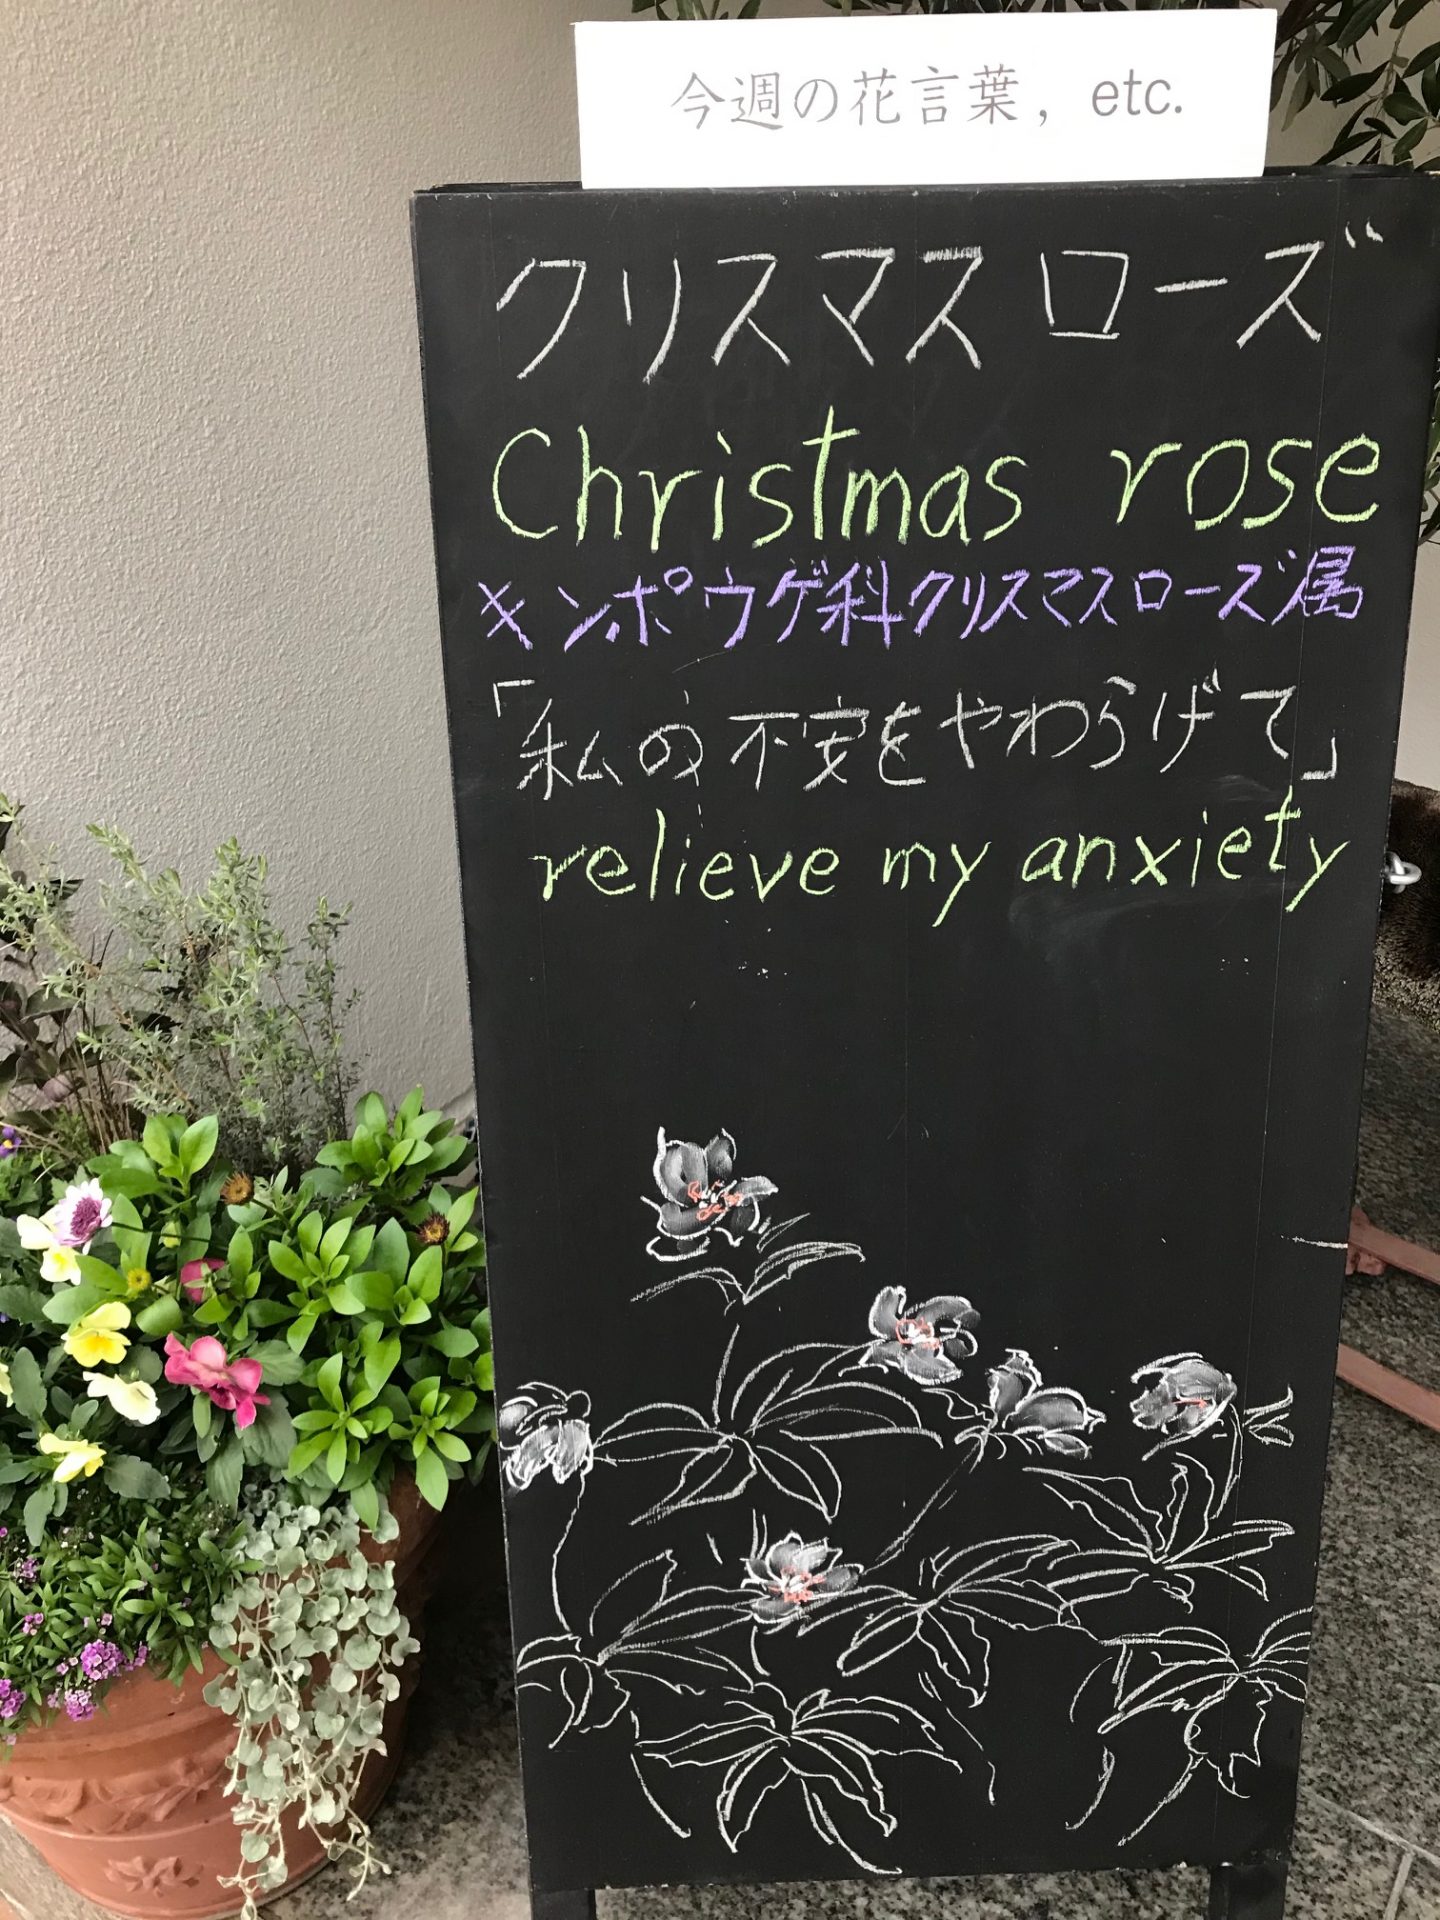 今週の花言葉, etc.
クリスマスローズ
Christmas rose
キンポウゲ科クリスマスローズ属
「私の不安をやわらげて」
relieve my anxiety